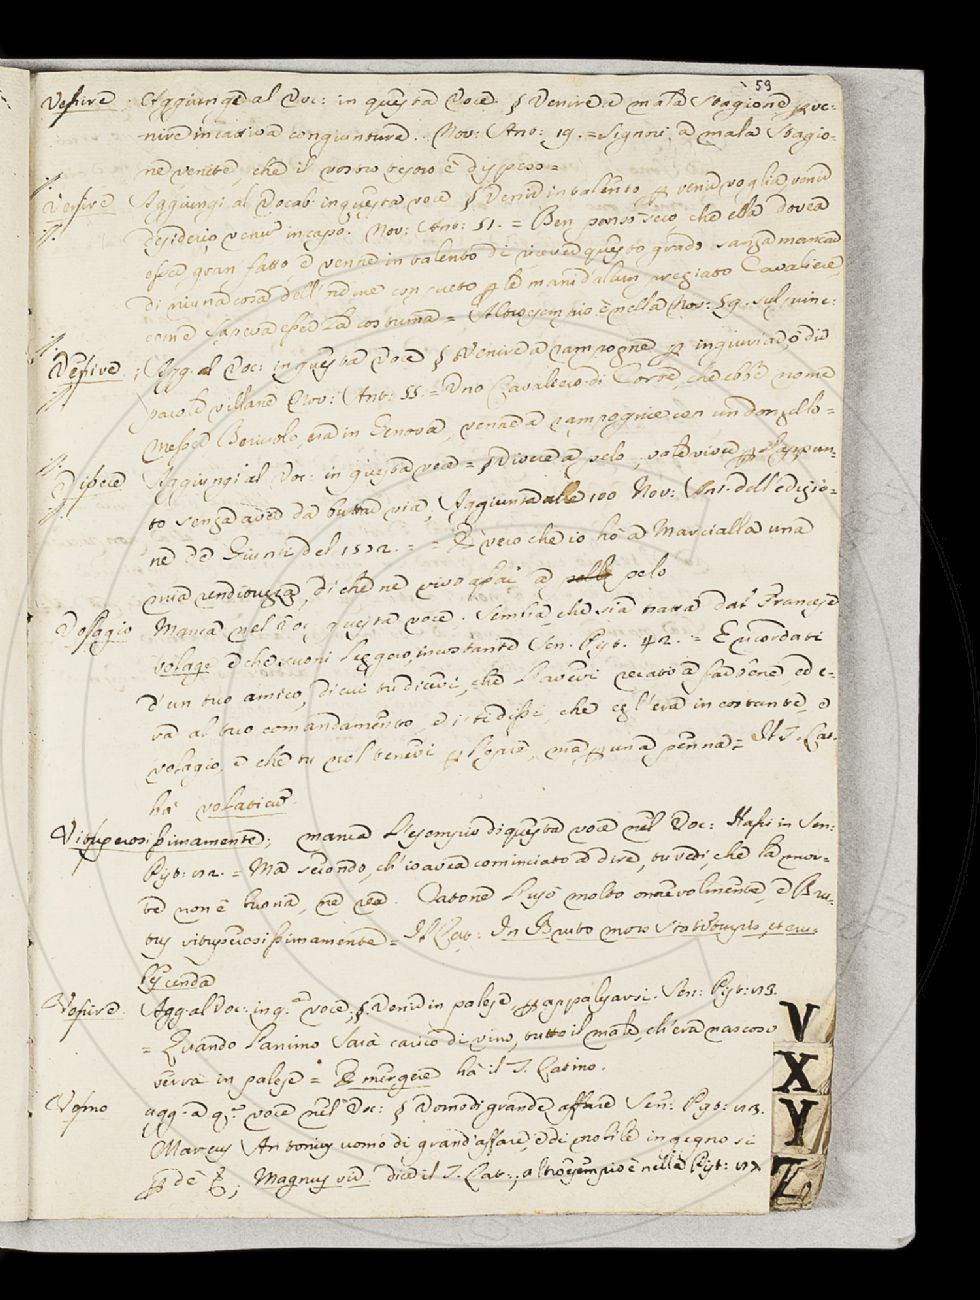 59
Venire. Aggiunge al Voc: in questa Voce. § Venire a mala Stagione, p ve-
nire in cattiva congiuntura. Nov: Ano: 19. = Signori, a mala Stagio-
ne venite, che il vostro tesoro è dispeso =
Venire Aggiungi al Vocab. in questa voce § Venire in talento p venir voglia, venir
desiderio, venir in capo. Nov: Ano: 51. = Ben pensò seco, che ella dovea
esser gran fatto e venne in talento di ricever questo grado sanza mancar
di niuna cosa dell'ordine con tutto p le mani d'alcun pregiato Cavaliere,
come sapeva esser la costuma = Altro esempio è nella Nov: 59. sul fine:
Venire; Agg. al Voc: in questa Voce § Venire a rampogne p ingiuriarsi, o dir
parole villane Nov: Ant: 55. = Uno Cavaliero di Corte, che ebbe nome
Messer Beriuolo, era in Genova, venne a rampogne con un donzello =
Vivere Aggiungi al Voc: in questa voce = § Vivere a pelo, vale viver p l'appun-
to senza aver da buttar via, Aggiunta alle 100 Nov: Ant. dell'edizio-
ne de Giunti del 1572. = = È vero che io hò a Marcialla una
mia vendouzza, di che ne vivo assai a pelo
Volagio Manca nel Voc questa voce. Sembra, che sia tratta dal Franzese
volage e che suoni Leggero, incostante Sen. Pist. 42. = E ricordati
d'un tuo amico, di cui tu dicevi, che l'avevi recato a far bene, ed e-
ra al tuo comandamento, e i' ti dissi, che egl'era incostante, e
volagio, e che tu nol tenevi p lo piè, ma p una penna = Il T. Lat.
ha volaticus.
Vituperosissimamente; manca l'esempio di questa voce nel Voc: Hassi in Sen:
Pist: 82. = Ma secondo, ch'io avea cominciato a dire, tu vedi che la mor-
te non è buona, ne rea. Catone l'usò molto onorevolmente, e Bru-
tus vituperosissimamente = Il Lat: In Bruto mors turpis, et eru-
bescenda
Venire. Agg. al Voc: in q.a voce, § Venir in palese p appalesarsi. Sen: Pist: 83.
= Quando l'animo sarà carico di vino, tutto il male, ch'era nascoso
verrà in palese = Emergere ha il T. Latino.
Vomo agg. a q.a voce nel Voc: § Vomo di grande affare Sen: Pist: 83.
Marcus Antonius uomo di grand'affare, e di nobile ingegno si
p dè; Magnus vir dice il T. Lat:, altro esempio è nella Pist: 87.
V
X
Y
Z